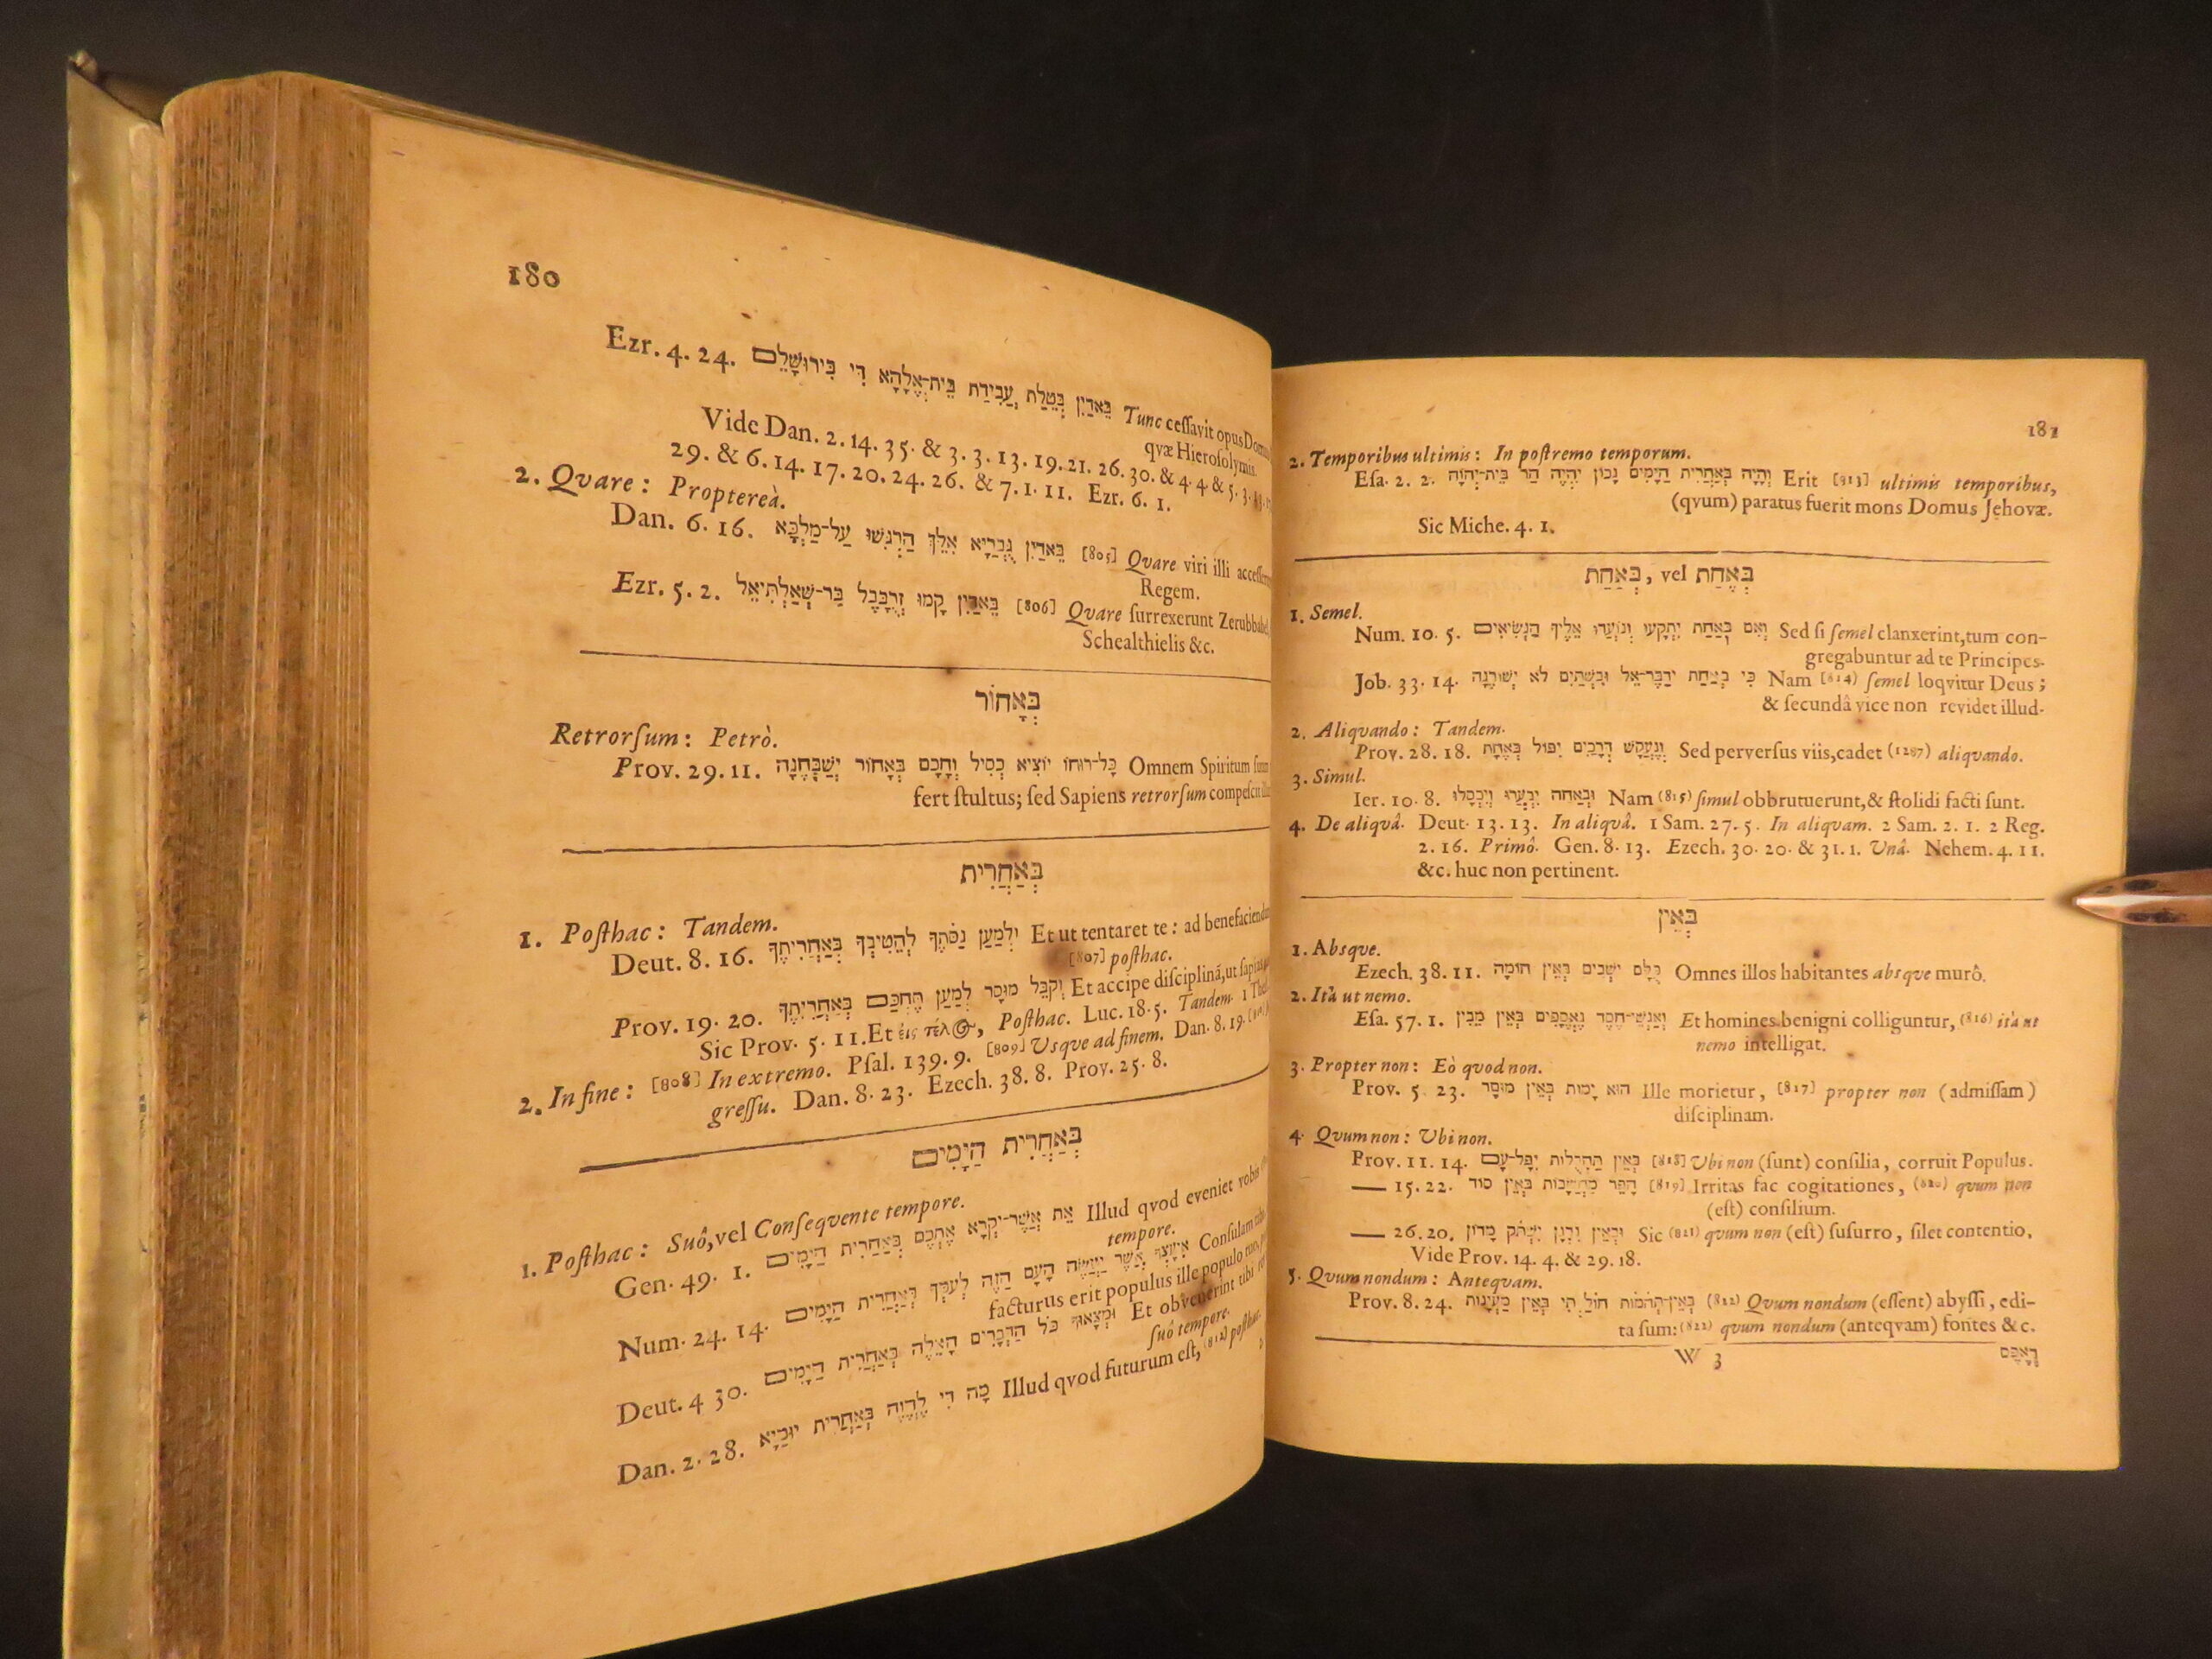 180
Ezr. 4. 24. בֵּאדַיִן בְּטֵלַת עֲבִידַת בֵּית־אֱלָהָא דִּי בִּירוּשְׁלֵם Tunc ceſſavit opus
qvæ Hieroſolymis.
Vide Dan. 2. 14. 35. & 3. 3. 13. 19. 21. 26. 30. & 4. 4 & 5. 3.
29. & 6. 14. 17. 20. 24. 26. & 7. 1. 11. Ezr. 6. 1.
2. Qvare: Propterea̍.
Dan. 6. 16. בֵּאדַיִן גֻּבְרַיָּא אִלֵּךְ הַרְגִּשׁוּ עַל־מַלְכָּא [805] Qvare viri illi
Regem.
Ezr. 5. 2. בֵּאדַיִן קָמוּ זְרֻבָּבֶל בַּר־שְׁאַלְתִּיאֵל [806] Qvare ſurrexerunt
Schealthielis &c.
בְּאָחוֹר
Retrorſum: Petrò.
Prov. 29. 11. כָּל־רוּחוֹ יוֹצִיא כְסִיל וְחָכָם בְּאָחוֹר יְשַׁבְּחֶנָּה Omnem Spiritum
fert ſtultus; ſed Sapiens retrorſum
בְּאַחֲרִית
1. Poſthac: Tandem.
Deut. 8. 16. לְהֵטִיבְךָ בְּאַחֲרִיתֶךָ Et ut tentaret te: ad
[807] poſthac.
Prov. 19. 20. וְקַבֵּל מוּסָר לְמַעַן תֶּחְכַּם בְּאַחֲרִיתֶךָ Et accipe diſciplinā, ut
Sic Prov. 5. 11. Et Poſthac. Luc. 18. 5. Tandem. 1
2. In fine: [808] In extremo. Pſal. 139. 9. [809] Usque ad finem. Dan. 8. 19.
greſſu. Dan. 8. 23. Ezech. 38. 8. Prov. 25. 8.
בְּאַחֲרִית הַיָּמִים
1. Poſthac: Suô, vel Conſeqvente tempore.
Gen. 49. 1. אֵת אֲשֶׁר־יִקְרָא אֶתְכֶם בְּאַחֲרִית הַיָּמִים Illud qvod eveniet vobis
tempore.
Num. 24. 14. אֲשֶׁר יַעֲשֶׂה הָעָם הַזֶּה לְעַמְּךָ בְּאַחֲרִית הַיָּמִים
facturus erit populus ille populo
Deut. 4 30. וּמְצָאוּךָ כֹּל הַדְּבָרִים הָאֵלֶּה בְּאַחֲרִית הַיָּמִים Et obvenerint tibi
ſuô tempore.
Dan. 2. 28. מָה דִּי לֶהֱוֵה בְּאַחֲרִית יוֹמַיָּא Illud qvod futurum eſt, (812)
181
2. Temporibus ultimis: In poſtremo temporum.
Eſa. 2. 2. וְהָיָה בְּאַחֲרִית הַיָּמִים נָכוֹן יִהְיֶה הַר בֵּית־יְהוָֹה Erit [813] ultimis temporibus,
(qvum) paratus fuerit mons Domus Jehovæ.
Sic Miche. 4. 1.
בְּאַחַת, vel בְּאֶחַת
1. Semel.
Num. 10. 5. וְאִם בְּאַחַת יִתְקָעוּ וְנוֹעֲדוּ אֵלֶיךָ הַנְּשִׂיאִים Sed ſi ſemel clanxerint, tum con-
gregabuntur ad te Principes.
Job. 33. 14. כִּי בְאַחַת יְדַבֶּר־אֵל וּבִשְׁתַּיִם לֹא יְשׁוּרֶנָּה Nam [814] ſemel loqvitur Deus;
& ſecundâ vice non revidet illud.
2. Aliqvando: Tandem.
Prov. 28. 18. וְנֶעְקַשׁ דְּרָכַיִם יִפּוֹל בְּאֶחָת Sed perverſus viis, cadet (1287) aliqvando.
3. Simul.
Ier. 10. 8. וּבְאַחַת יִבְעֲרוּ וְיִכְסָלוּ Nam (815) ſimul obbrutuerunt, & ſtolidi facti ſunt.
4. De aliqvâ. Deut. 13. 13. In aliqvâ. 1 Sam. 27. 5. In aliqvam. 2 Sam. 2. 1. 2 Reg.
2. 16. Primô. Gen. 8. 13. Ezech. 30. 20. & 31. 1. Unâ. Nehem. 4. 11.
&c. huc non pertinent.
בְּאֵין
1. Absque.
Ezech. 38. 11. כֻּלָּם יֹשְׁבִים בְּאֵין חוֹמָה Omnes illos habitantes absque murô.
2. Ita̍ ut nemo.
Eſa. 57. 1. וְאַנְשֵׁי־חֶסֶד נֶאֱסָפִים בְּאֵין מֵבִין Et homines benigni colliguntur, (816) ita̍ ut
nemo intelligat.
3. Propter non: Eò quod non.
Prov. 5. 23. הוּא יָמוּת בְּאֵין מוּסָר Ille morietur, [817] propter non (admiſſam)
diſciplinam.
4. Qvum non: Ubi non.
Prov. 11. 14. בְּאֵין תַּחְבֻּלוֹת יִפָּל־עָם [818] Ubi non (ſunt) conſilia, corruit Populus.
— 15. 22. הָפֵר מַחֲשָׁבוֹת בְּאֵין סוֹד [819] Irritas fac cogitationes, (820) qvum non
(eſt) conſilium.
— 26. 20. וּבְאֵין נִרְגָּן יִשְׁתֹּק מָדוֹן Sic (821) qvum non (eſt) ſuſurro, ſilet contentio.
Vide Prov. 14. 4. & 29. 18.
5. Qvum nondum: Anteqvam.
Prov. 8. 24. בְּאֵין־תְּהֹמוֹת חוֹלָלְתִּי בְּאֵין מַעְיָנוֹת (822) Qvum nondum (eſſent) abyſſi, edi-
ta ſum: (822) qvum nondum (anteqvam) fontes &c.
W 3